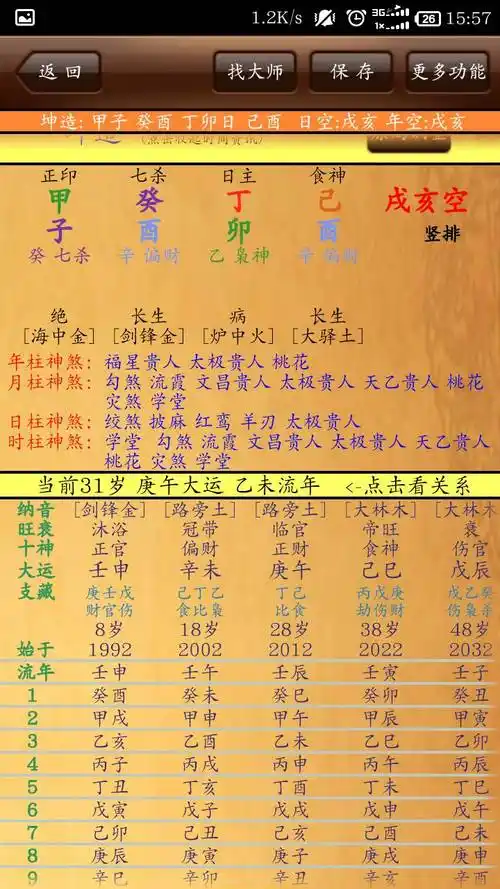 1.2K/s 3G 1x 26 15:57
返回 找大师 保存 更多功能
坤造: 甲子 癸酉 丁卯日 己酉 日空:戌亥 年空:戌亥
正印 七杀 日主 食神
甲 癸 丁 己 戌亥空
子 酉 卯 酉 竖排
癸 七杀 辛 偏财 乙 枭神 辛 偏财
绝 长生 病 长生
[海中金] [剑锋金] [炉中火] [大驿土]
年柱神煞: 福星贵人 太极贵人 桃花
月柱神煞: 勾煞 流霞 文昌贵人 太极贵人 天乙贵人 桃花
灾煞 学堂
日柱神煞: 绞煞 披麻 红鸾 羊刃 太极贵人
时柱神煞: 学堂 勾煞 流霞 文昌贵人 太极贵人 天乙贵人
桃花 灾煞 学堂
当前31岁 庚午大运 乙未流年 <-点击看关系
纳音 [剑锋金] [路旁土] [路旁土] [大林木] [大林木
旺衰 沐浴 冠带 临官 帝旺 衰
十神 正官 偏财 正财 食神 伤官
大运 壬申 辛未 庚午 己巳 戊辰
支藏 庚壬戊 己丁乙 丁己 丙戊庚 戊乙癸
财官伤 食比枭 比食 劫伤财 伤枭杀
8岁 18岁 28岁 38岁 48岁
始于 1992 2002 2012 2022 2032
流年 壬申 壬午 壬辰 壬寅 壬子
1 癸酉 癸未 癸巳 癸卯 癸丑
2 甲戌 甲申 甲午 甲辰 甲寅
3 乙亥 乙酉 乙未 乙巳 乙卯
4 丙子 丙戌 丙申 丙午 丙辰
5 丁丑 丁亥 丁酉 丁未 丁巳
6 戊寅 戊子 戊戌 戊申 戊午
7 己卯 己丑 己亥 己酉 己未
8 庚辰 庚寅 庚子 庚戌 庚申
9 辛巳 辛卯 辛丑 辛亥 辛酉